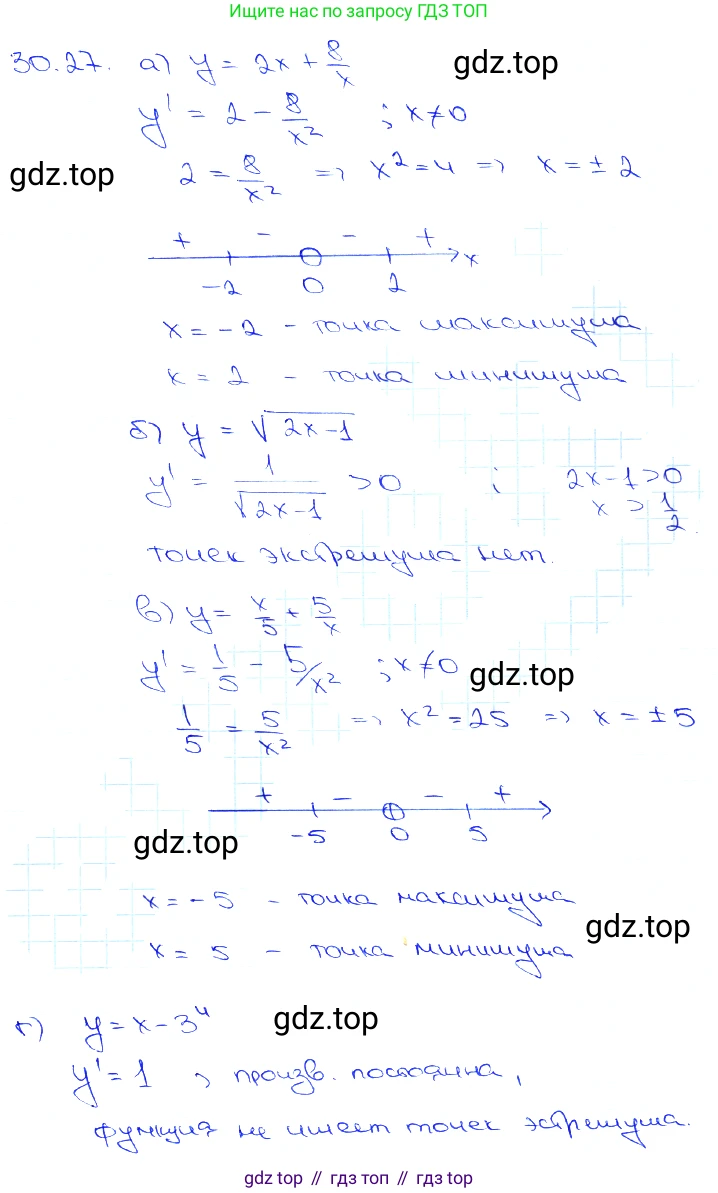 Ищите нас по запросу ГДЗ ТОП
30.27. а) y = 2x + 8/x
gdz.top
y' = 2 − 8/x² ; x≠0
gdz.top
2 = 8/x² => x² = 4 => x = ± 2
+ − − + x
−2 0 2
x = −2 – точка максимума
x = 2 – точка минимума
б) y = √(2x−1)
y' = 1/√(2x−1) > 0 ; 2x−1>0
x > 1/2.
точек экстремума нет.
в) y = x/5 + 5/x
y' = 1/5 − 5/x² ; x≠0
gdz.top
1/5 = 5/x² => x² = 25 => x = ± 5
+ − − +
−5 0 5
gdz.top
x = −5 – точка максимума
gdz.top
x = 5 – точка минимума
г) y = x − 3⁴
gdz.top
y' = 1 , произв. постоянна,
функция не имеет точек экстремума.
gdz top // гдз топ // гдз top